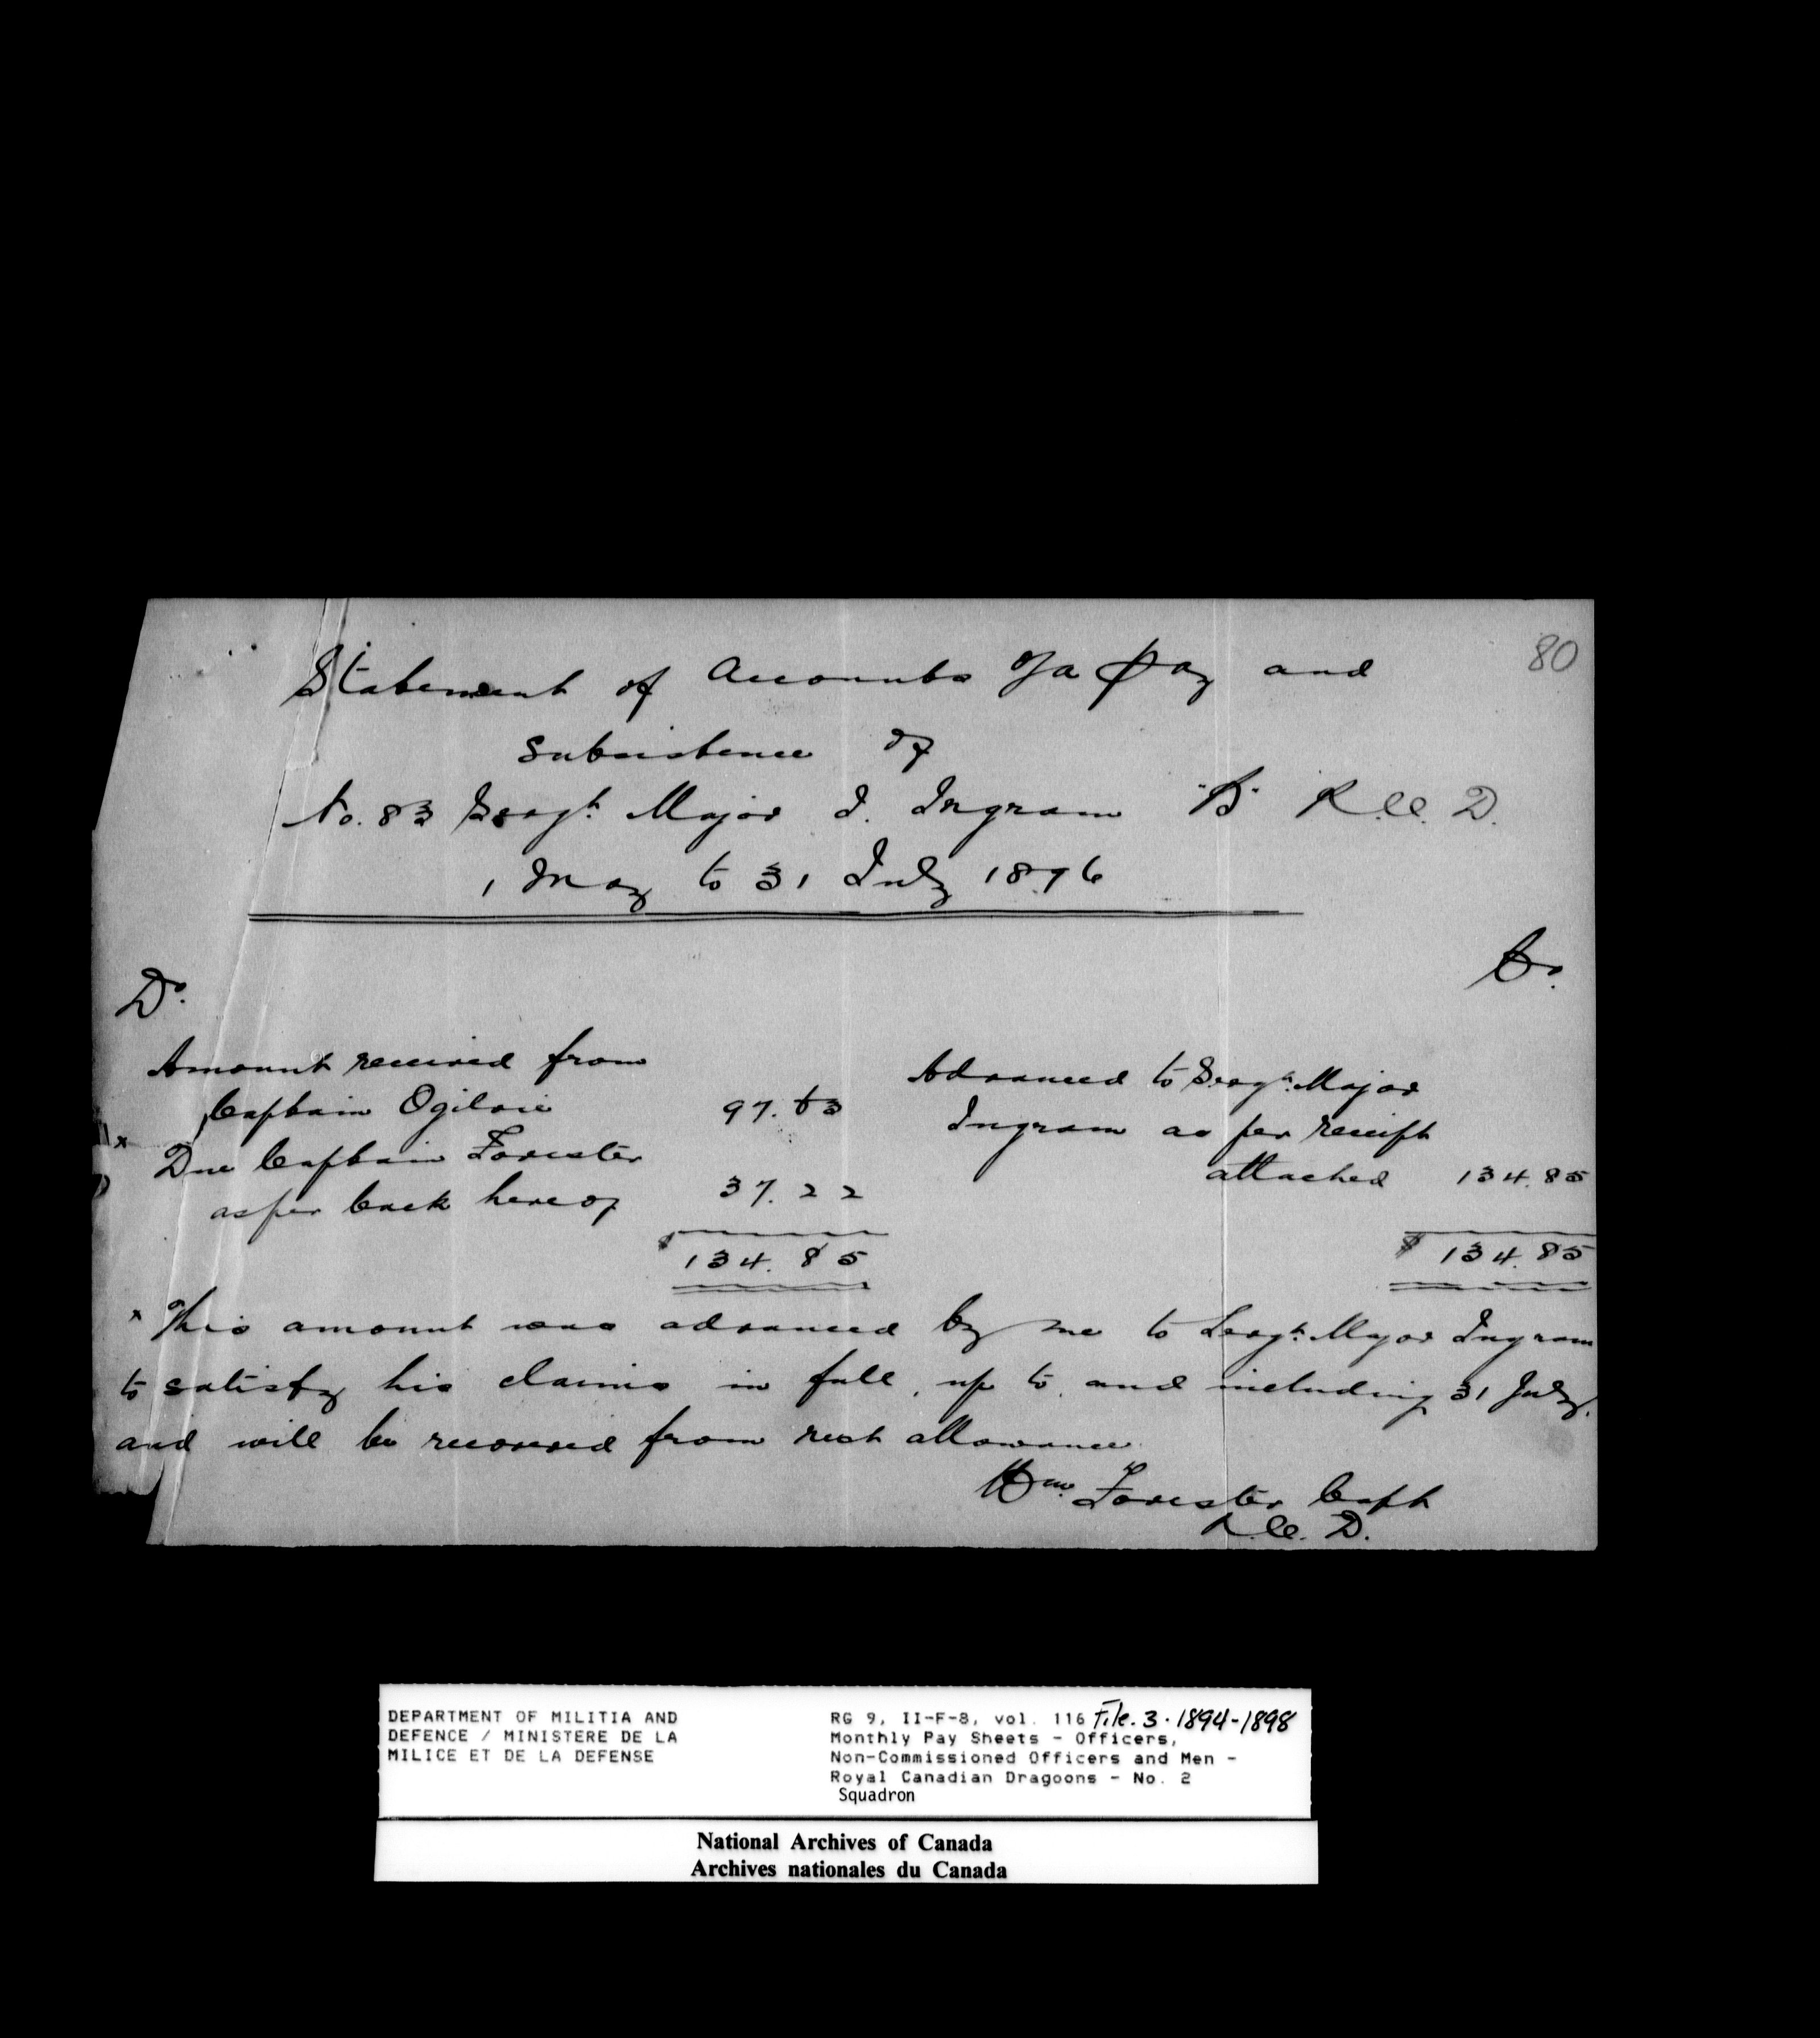 80
Statement of Accounts o/a Pay and
Subsistence of
No. 83 Sergt. Major J. Ingram "B" R.C.D.
1 May to 31 July 1896
Dr.
Cr.
Amount received from
Captain Ogilvie 97.63
x Due Captain Forester
as per back hereof 37.22
$ 134.85
Advanced to Sergt. Major
Ingram as per receipt
attached 134.85
$ 134.85
x This amount was advanced by me to Sergt. Major Ingram
to satisfy his claims in full, up to, and including 31 July.
and will be recovered from next allowance.
Wm. Forester Capt
R.C.D.
DEPARTMENT OF MILITIA AND
DEFENCE / MINISTERE DE LA
MILICE ET DE LA DEFENSE
RG 9, II-F-8, vol. 116 File. 3. 1894-1898
Monthly Pay Sheets - Officers,
Non-Commissioned Officers and Men -
Royal Canadian Dragoons - No. 2
Squadron
National Archives of Canada
Archives nationales du Canada